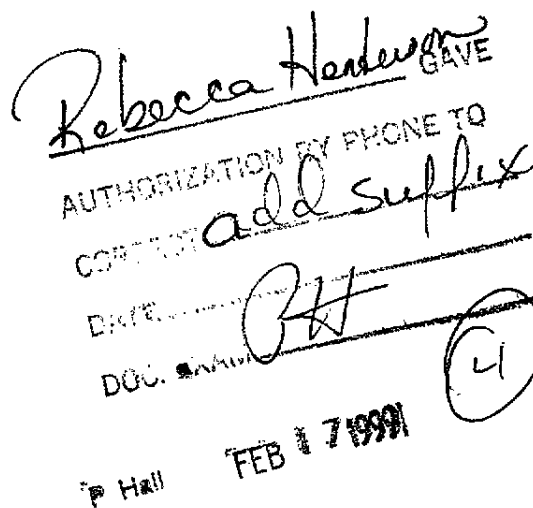 Rebecca Henderson GAVE
AUTHORIZATION BY PHONE TO
CORRECT add suffix
DATE
DOC. EXAM PH
4
P Hall FEB 17 1999